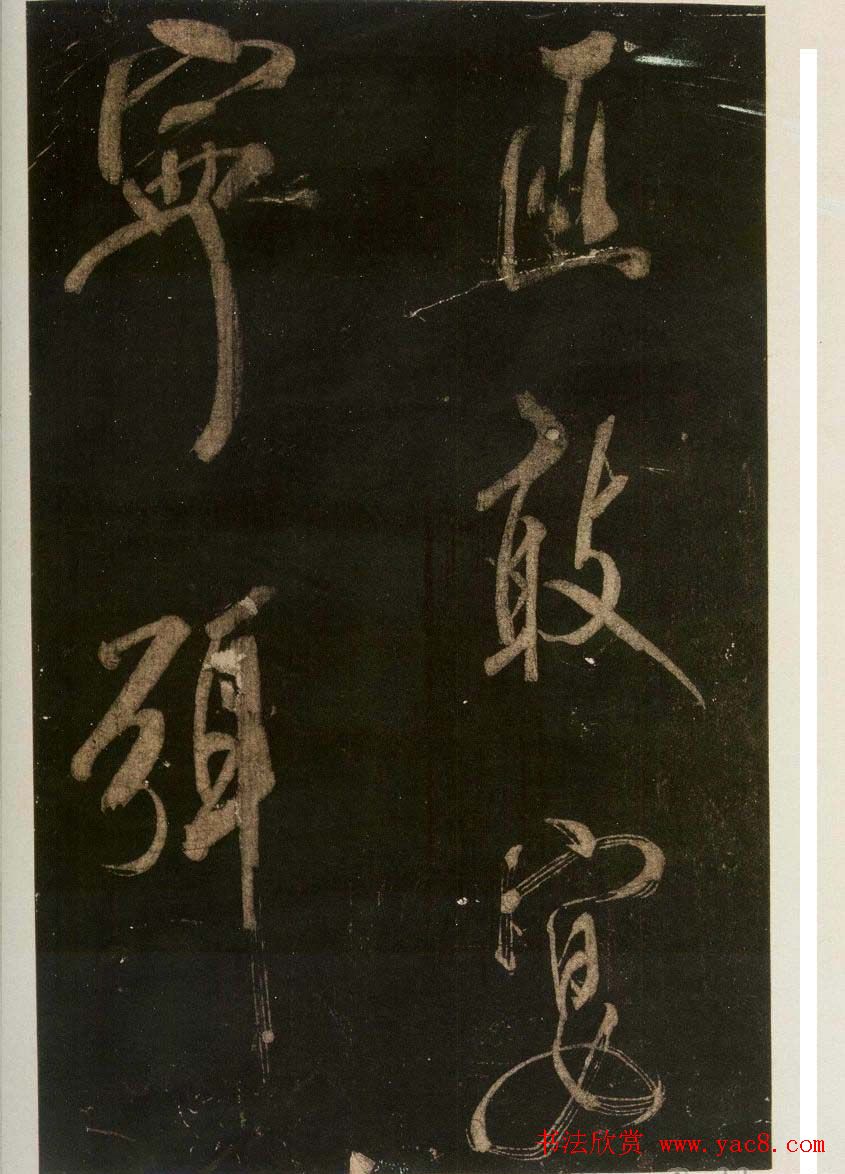 直敢宴
寧弭
书法欣赏 www.yac8.com